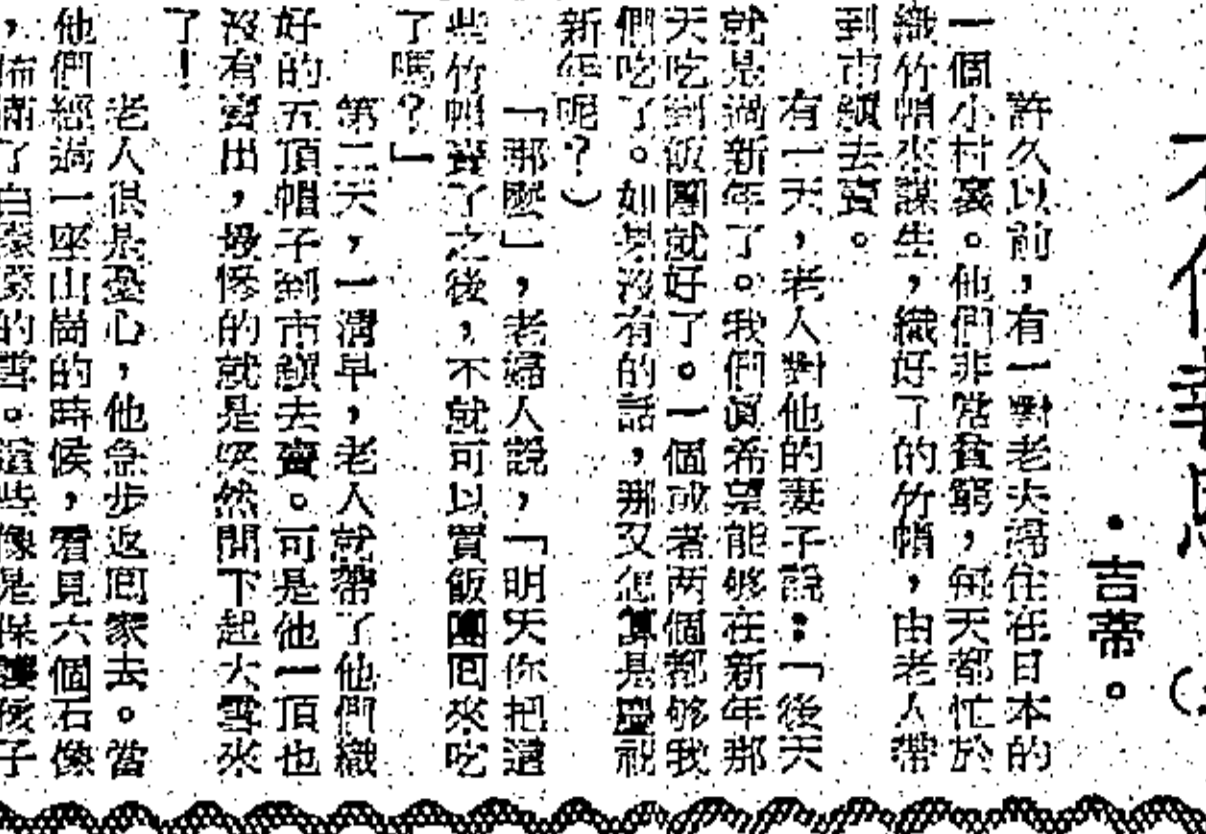 ・吉蒂。
許久以前，有一對老夫婦住在日本的
一個小村裏。他們非常貧窮，每天都忙於
織竹帽來謀生，織好了的竹帽，由老人帶
到市鎮去賣。
有一天，老人對他的妻子說：「後天
就是過新年了。我們眞希望能够在新年那
天吃到飯團就好了。一個或者两個都够我
們吃了。如果沒有的話，那又怎算是慶祝
新年呢？）
「那麼」，老婦人說，「明天你把這
些竹帽賣了之後，不就可以買飯團囘來吃
了嗎？」
第二天，一淸早，老人就帶了他們織
好的五頂帽子到市鎮去賣。可是他一頂也
沒有賣出，最慘的就是突然間下起大雪來
了！
老人很是憂心，他急步返囘家去。當
他們經過一座山崗的時候，看見六個石像
，佈滿了白濛濛的雪。這些像是保護孩子